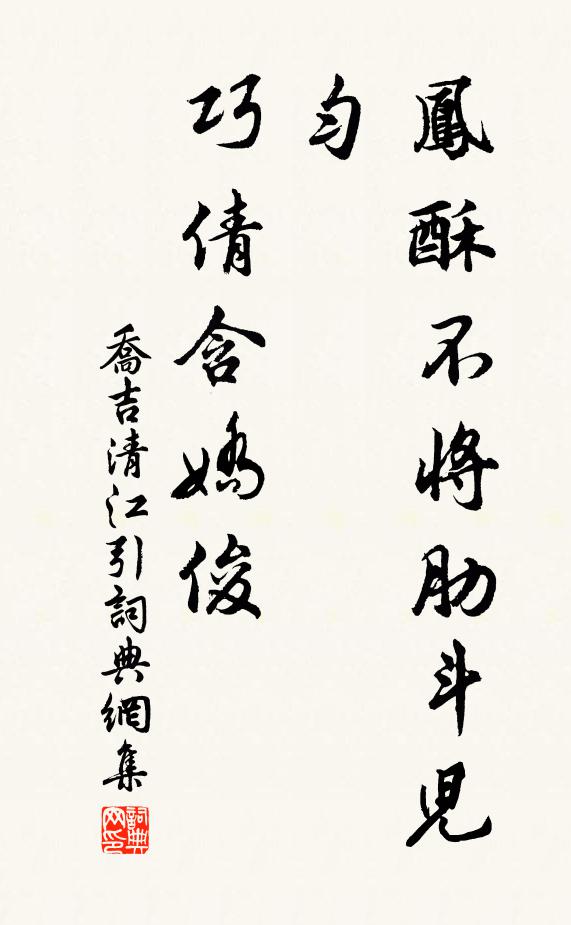 鳳酥不將肋斗兒
勻
巧倩含嬌俊
喬吉清江引詞典網集
詞典网印